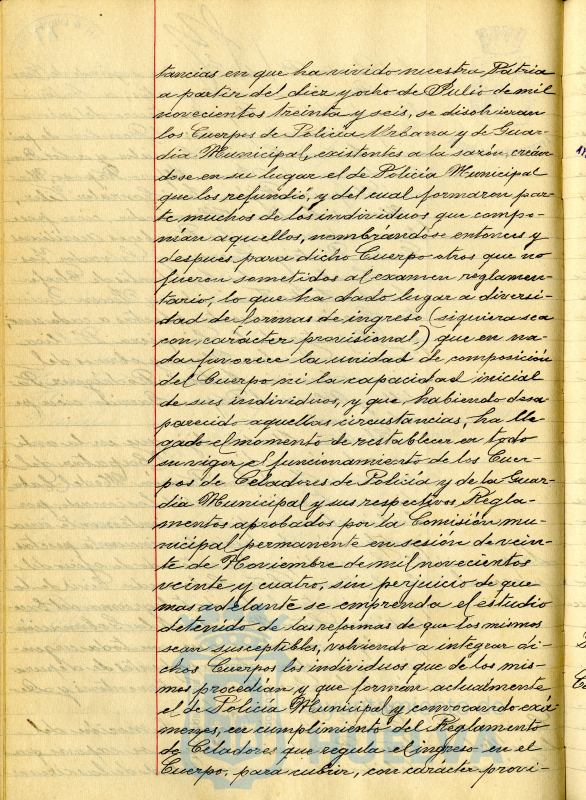 tancias en que ha vivido nuestra Patria
a partir del diez y ocho de Julio de mil
novecientos treinta y seis, se disolvieran
los Cuerpos de Policía Urbana y de Guar-
dia Municipal, existentes a la sazón, creán-
dose en su lugar el de Policía Municipal
que los refundió, y del cual formaron par-
te muchos de los individuos que compo-
nían aquellos, nombrándose entonces y
después para dicho Cuerpo otros que no
fueron sometidos al examen reglamen-
tario, lo que ha dado lugar a diversi-
dad de formas de ingreso (siquiera sea
con carácter provisional) que en na-
da favorece la unidad de composición
del Cuerpo ni la capacidad inicial
de sus individuos, y que habiendo desa
parecido aquellas circustancias, ha lle-
gado el momento de restablecer en todo
su vigor el funcionamiento de los Cuer-
pos de Celadores de Policía y de la Guar-
dia Municipal y sus respectivos Regla-
mentos aprobados por la Comisión mu-
nicipal permanente en sesión de vein-
te de Noviembre de mil novecientos
veinte y cuatro, sin perjuicio de que
mas adelante se emprenda el estudio
detenido de las reformas de que los mismos
sean susceptibles, volviendo a integrar di-
chos Cuerpos los individuos que de los mis-
mos procedían y que forman actualmente
el de Policía Municipal y convocando exá-
menes, en cumplimiento del Reglamento
de Celadores que regula el ingreso en el
Cuerpo, para cubrir, con carácter provi-
HUELVA